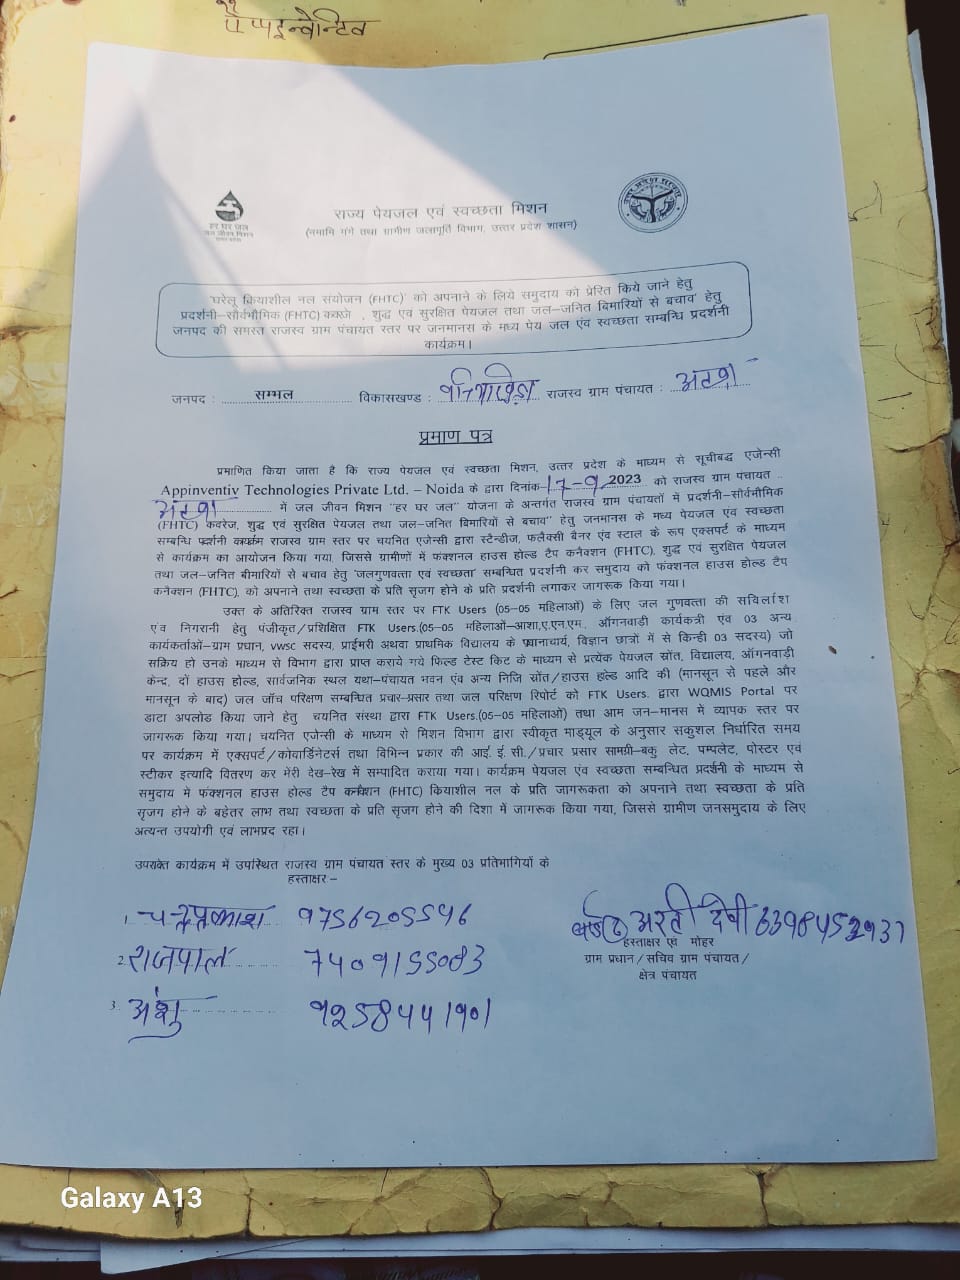 एप्पइन्वेन्टिव
हर घर जल
जल जीवन मिशन
राज्य पेयजल एवं स्वच्छता मिशन
(नमामि गंगे तथा ग्रामीण जलापूर्ति विभाग, उत्तर प्रदेश शासन)
'घरेलू क्रियाशील नल संयोजन (FHTC)' को अपनाने के लिये समुदाय को प्रेरित किये जाने हेतु
प्रदर्शनी–सौर्वभौमिक (FHTC) कवरेज , शुद्ध एवं सुरक्षित पेयजल तथा जल–जनित बिमारियों से बचाव' हेतु
जनपद की समस्त राजस्व ग्राम पंचायत स्तर पर जनमानस के मध्य पेय जल एंव स्वच्छता सम्बन्धि प्रदर्शनी
कार्यक्रम।
जनपद : सम्भल विकासखण्ड : पनिया खेड़ा राजस्व ग्राम पंचायत :
प्रमाण पत्र
प्रमाणित किया जाता है कि राज्य पेयजल एवं स्वच्छता मिशन, उत्तर प्रदेश के माध्यम से सूचीबद्ध एजेन्सी
Appinventiv Technologies Private Ltd. – Noida के द्वारा दिनांक 17-9 2023 को राजस्व ग्राम पंचायत ..
में जल जीवन मिशन "हर घर जल" योजना के अन्तर्गत राजस्व ग्राम पंचायतों में प्रदर्शनी–सौर्वभौमिक
(FHTC) कवरेज, शुद्ध एवं सुरक्षित पेयजल तथा जल–जनित बिमारियों से बचाव" हेतु जनमानस के मध्य पेयजल एंव स्वच्छता
सम्बन्धि प्रदर्शनी कार्यक्रम राजस्व ग्राम स्तर पर चयनित एजेन्सी द्वारा स्टैन्डीज, फलैक्सी बैनर एंव स्टाल के रूप एक्सपर्ट के माध्यम
से कार्यक्रम का आयोजन किया गया, जिससे ग्रामीणों में फंक्शनल हाउस होल्ड टैप कनैक्शन (FHTC), शुद्ध एवं सुरक्षित पेयजल
तथा जल–जनित बीमारियों से बचाव हेतु 'जलगुणवत्ता एवं स्वच्छता' सम्बन्धित प्रदर्शनी कर समुदाय को फंक्शनल हाउस होल्ड टैप
कनैक्शन (FHTC), को अपनाने तथा स्वच्छता के प्रति सृजग होने के प्रति प्रदर्शनी लगाकर जागरूक किया गया।
उक्त के अतिरिक्त राजस्व ग्राम स्तर पर FTK Users (05–05 महिलाओं) के लिए जल गुणवत्ता की सर्विलांश
एंव निगरानी हेतु पंजीकृत/प्रशिक्षित FTK Users.(05–05 महिलाओं–आशा,ए.एन.एम., ऑगनवाड़ी कार्यकत्री एंव 03 अन्य
कार्यकर्ताओं–ग्राम प्रधान, vwsc सदस्य, प्राईमरी अथवा प्राथमिक विद्यालय के प्रधानाचार्य, विज्ञान छात्रों में से किन्ही 03 सदस्य) जो
सक्रिय हो उनके माध्यम से विभाग द्वारा प्राप्त कराये गये फिल्ड टेस्ट किट के माध्यम से प्रत्येक पेयजल स्रोंत, विद्यालय, ऑगनवाड़ी
केन्द, दों हाउस होल्ड, सार्वजनिक स्थल यथा–पंचायत भवन एंव अन्य निजि स्रोंत/हाउस होल्ड आदि की (मानसून से पहले और
मानसून के बाद) जल जॉच परिक्षण सम्बन्धित प्रचार–प्रसार तथा जल परिक्षण रिपोर्ट को FTK Users. द्वारा WQMIS Portal पर
डाटा अपलोड किया जाने हेतु चयनित संस्था द्वारा FTK Users.(05–05 महिलाओं) तथा आम जन–मानस में व्यापक स्तर पर
जागरूक किया गया। चयनित एजेन्सी के माध्यम से मिशन विभाग द्वारा स्वीकृत माड्यूल के अनुसार संकुशल निर्धारित समय
पर कार्यक्रम में एक्सपर्ट/कोवार्डिनेटर्स तथा विभिन्न प्रकार की आई. ई. सी./प्रचार प्रसार सामग्री–बकु लेट, पम्पलेट, पोस्टर एवं
स्टीकर इत्यादि वितरण कर मेंरी देख–रेख में सम्पादित कराया गया। कार्यक्रम पेयजल एंव स्वच्छता सम्बन्धित प्रदर्शनी के माध्यम से
समुदाय में फंक्शनल हाउस होल्ड टैप कनैक्शन (FHTC) कियाशील नल के प्रति जागरूकता को अपनाने तथा स्वच्छता के प्रति
सृजग होने के बहेतर लाभ तथा स्वच्छता के प्रति सृजग होने की दिशा में जागरूक किया गया, जिससे ग्रामीण जनसमुदाय के लिए
अत्यन्त उपयोगी एवं लाभप्रद रहा।
उपरोक्त कार्यक्रम में उपस्थित राजस्व ग्राम पंचायत स्तर के मुख्य 03 प्रतिभागियों के
हस्ताक्षर –
1. चन्द्रप्रकाश 9756205596
2. राजपाल 7409155083
3. अंशु 9258441901
आरती देवी
हस्ताक्षर एंव मोहर
ग्राम प्रधान/सचिव ग्राम पंचायत/
क्षेत्र पंचायत
Galaxy A13